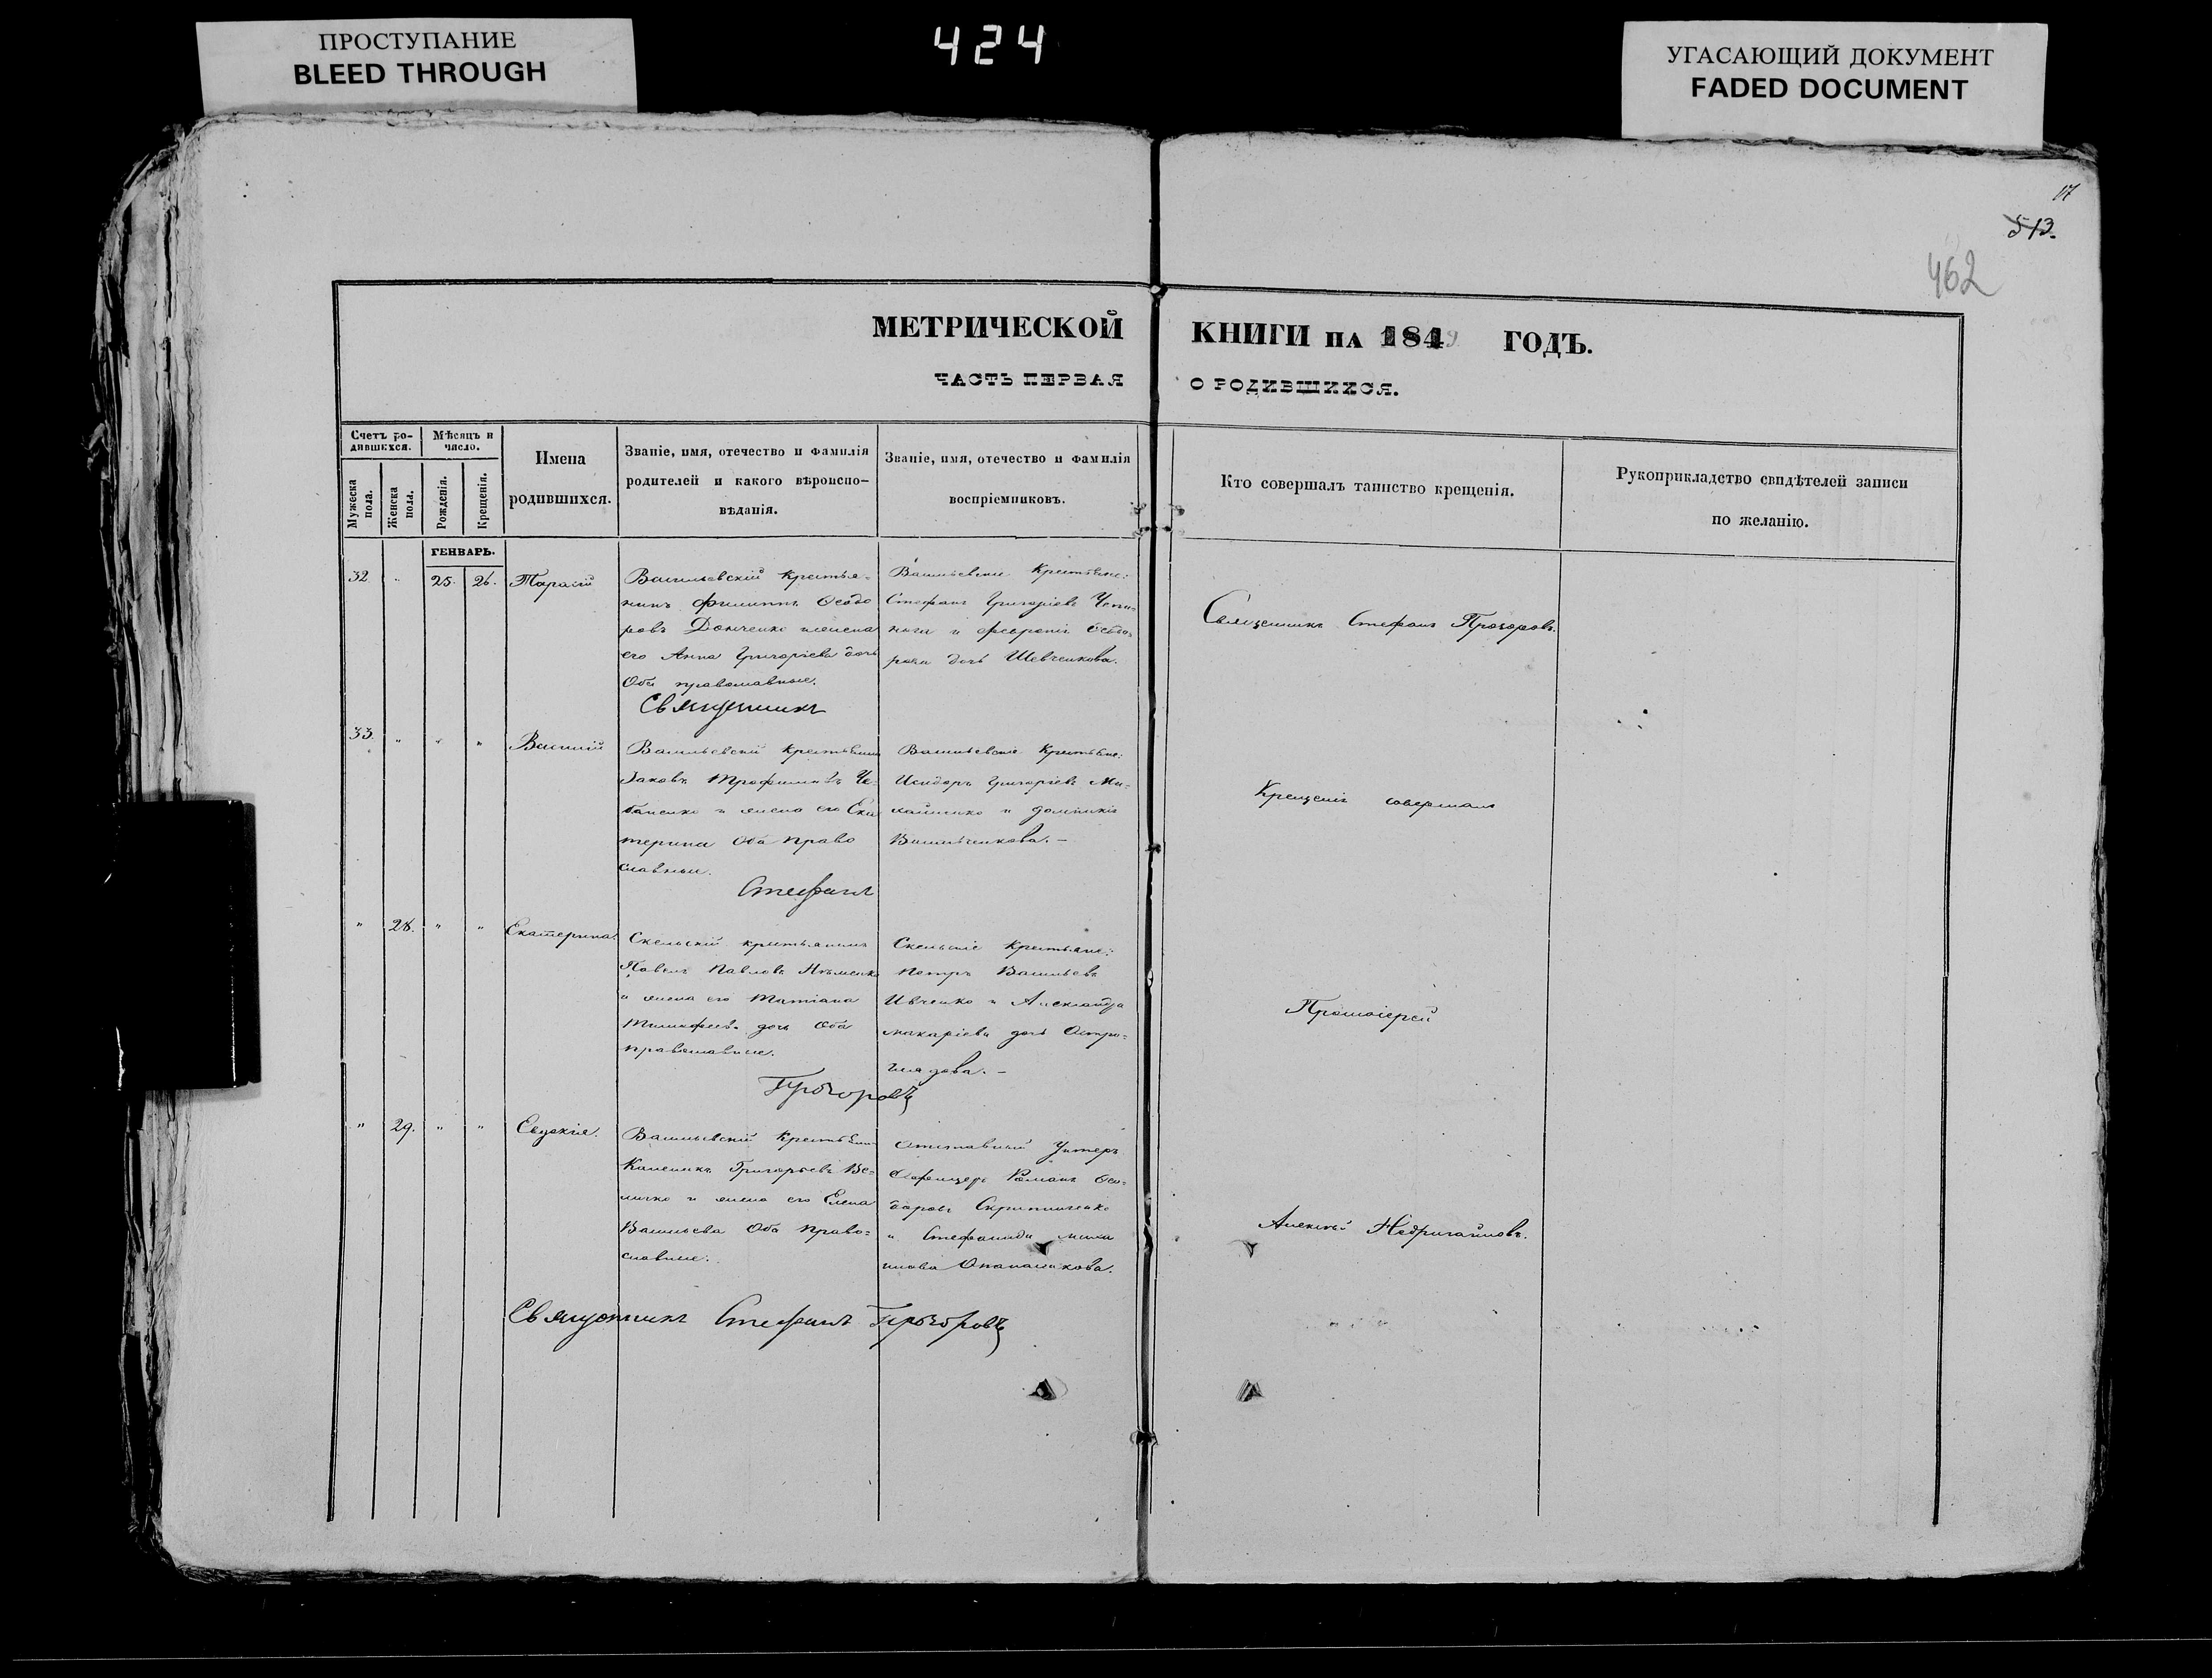 ПРОСТУПАНИЕ
BLEED THROUGH
424
УГАСАЮЩИЙ ДОКУМЕНТ
FADED DOCUMENT
117
513.
462
МЕТРИЧЕСКОЙ КНИГИ НА 1849 ГОДЪ.
ЧАСТЬ ПЕРВАЯ О РОДИВШИХСЯ.
Счетъ ро-
дившихся.
Мужеска пола.
Женска пола.
Мѣсяцъ и
число.
Рожденія.
Крещенія.
Имена
родившихся.
Званіе, имя, отечество и фамилія
родителей и какого вѣроиспо-
вѣданія.
Званіе, имя, отечество и фамилія
воспріемниковъ.
Кто совершалъ таинство крещенія.
Рукоприкладство свидѣтелей записи
по желанію.
ГЕНВАРЬ.
32 " 25. 26. Тарасій
Васильевскій Крестья-
нинъ Филиппъ Ѳеодо
ровъ Донченко и жена
его Анна Григоріева дочь
Оба православные.
Васильевскіе Крестьяне:
Стефанъ Григоріевъ
и Феѳронія Ѳеодо-
рова дочь Шевченкова.
Священникъ Стефанъ Прохоровъ.
Священникъ
33. " " " Василій
Васильевскій Крестьянинъ
Іаковъ Трофимовъ Че-
баненко и жена его Ека
терина Оба право
славные.
Васильевскіе Крестьяне:
Исидоръ Григоріевъ Ми-
хайленко и Домникія
Васильченкова. –
Крещеніе совершалъ
Стефанъ
" 28. " " Екатерина.
Скельскій крестьянинъ
Павелъ Павловъ Нѣменко
и жена его Татіана
Тимофеева дочь Оба
православные.
Скельскіе Крестьяне:
Петръ Васильевъ
Ивченко и Александра
Макаріева дочь Остро-
глядова. –
Протоіерей
Прохоровъ
" 29. " " Евдокія.
Васильевскій Крестьянинъ
Каленикъ Григорьевъ Ве-
личко и жена его Елена
Васильева Оба право-
славные.
Отставный Унтеръ
Офицеръ Романъ Ѳео-
доровъ Скрипниченко
и Стефанида
Опанасикова.
Алексѣй Недригайловъ.
Священникъ Стефанъ Прохоровъ